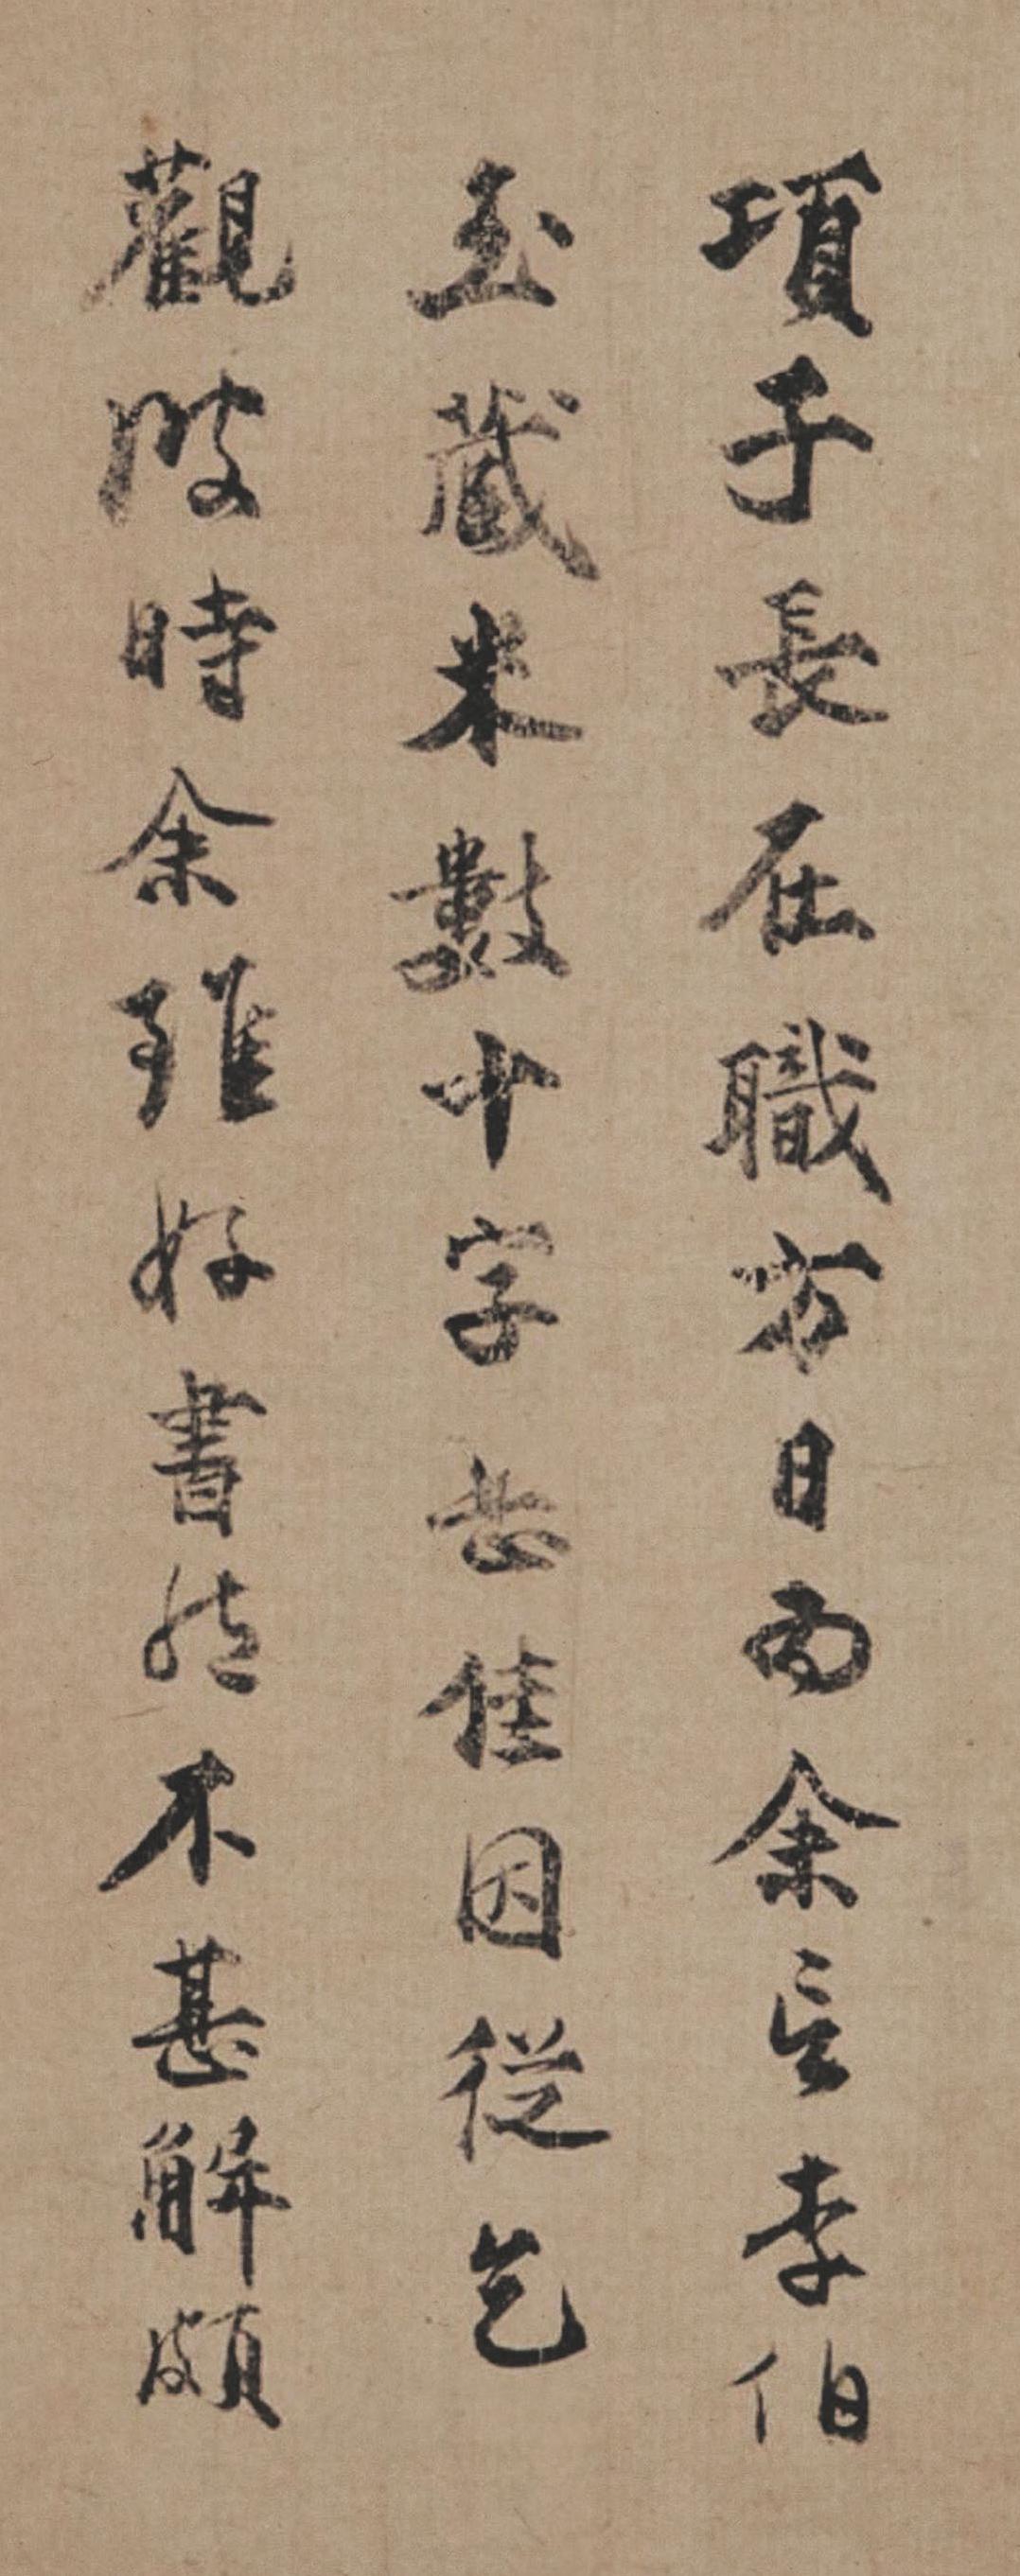 項子長在職方日為余言李伯
玉藏米數十字甚佳因從乞
觀彼時余雖好書然不甚解頗